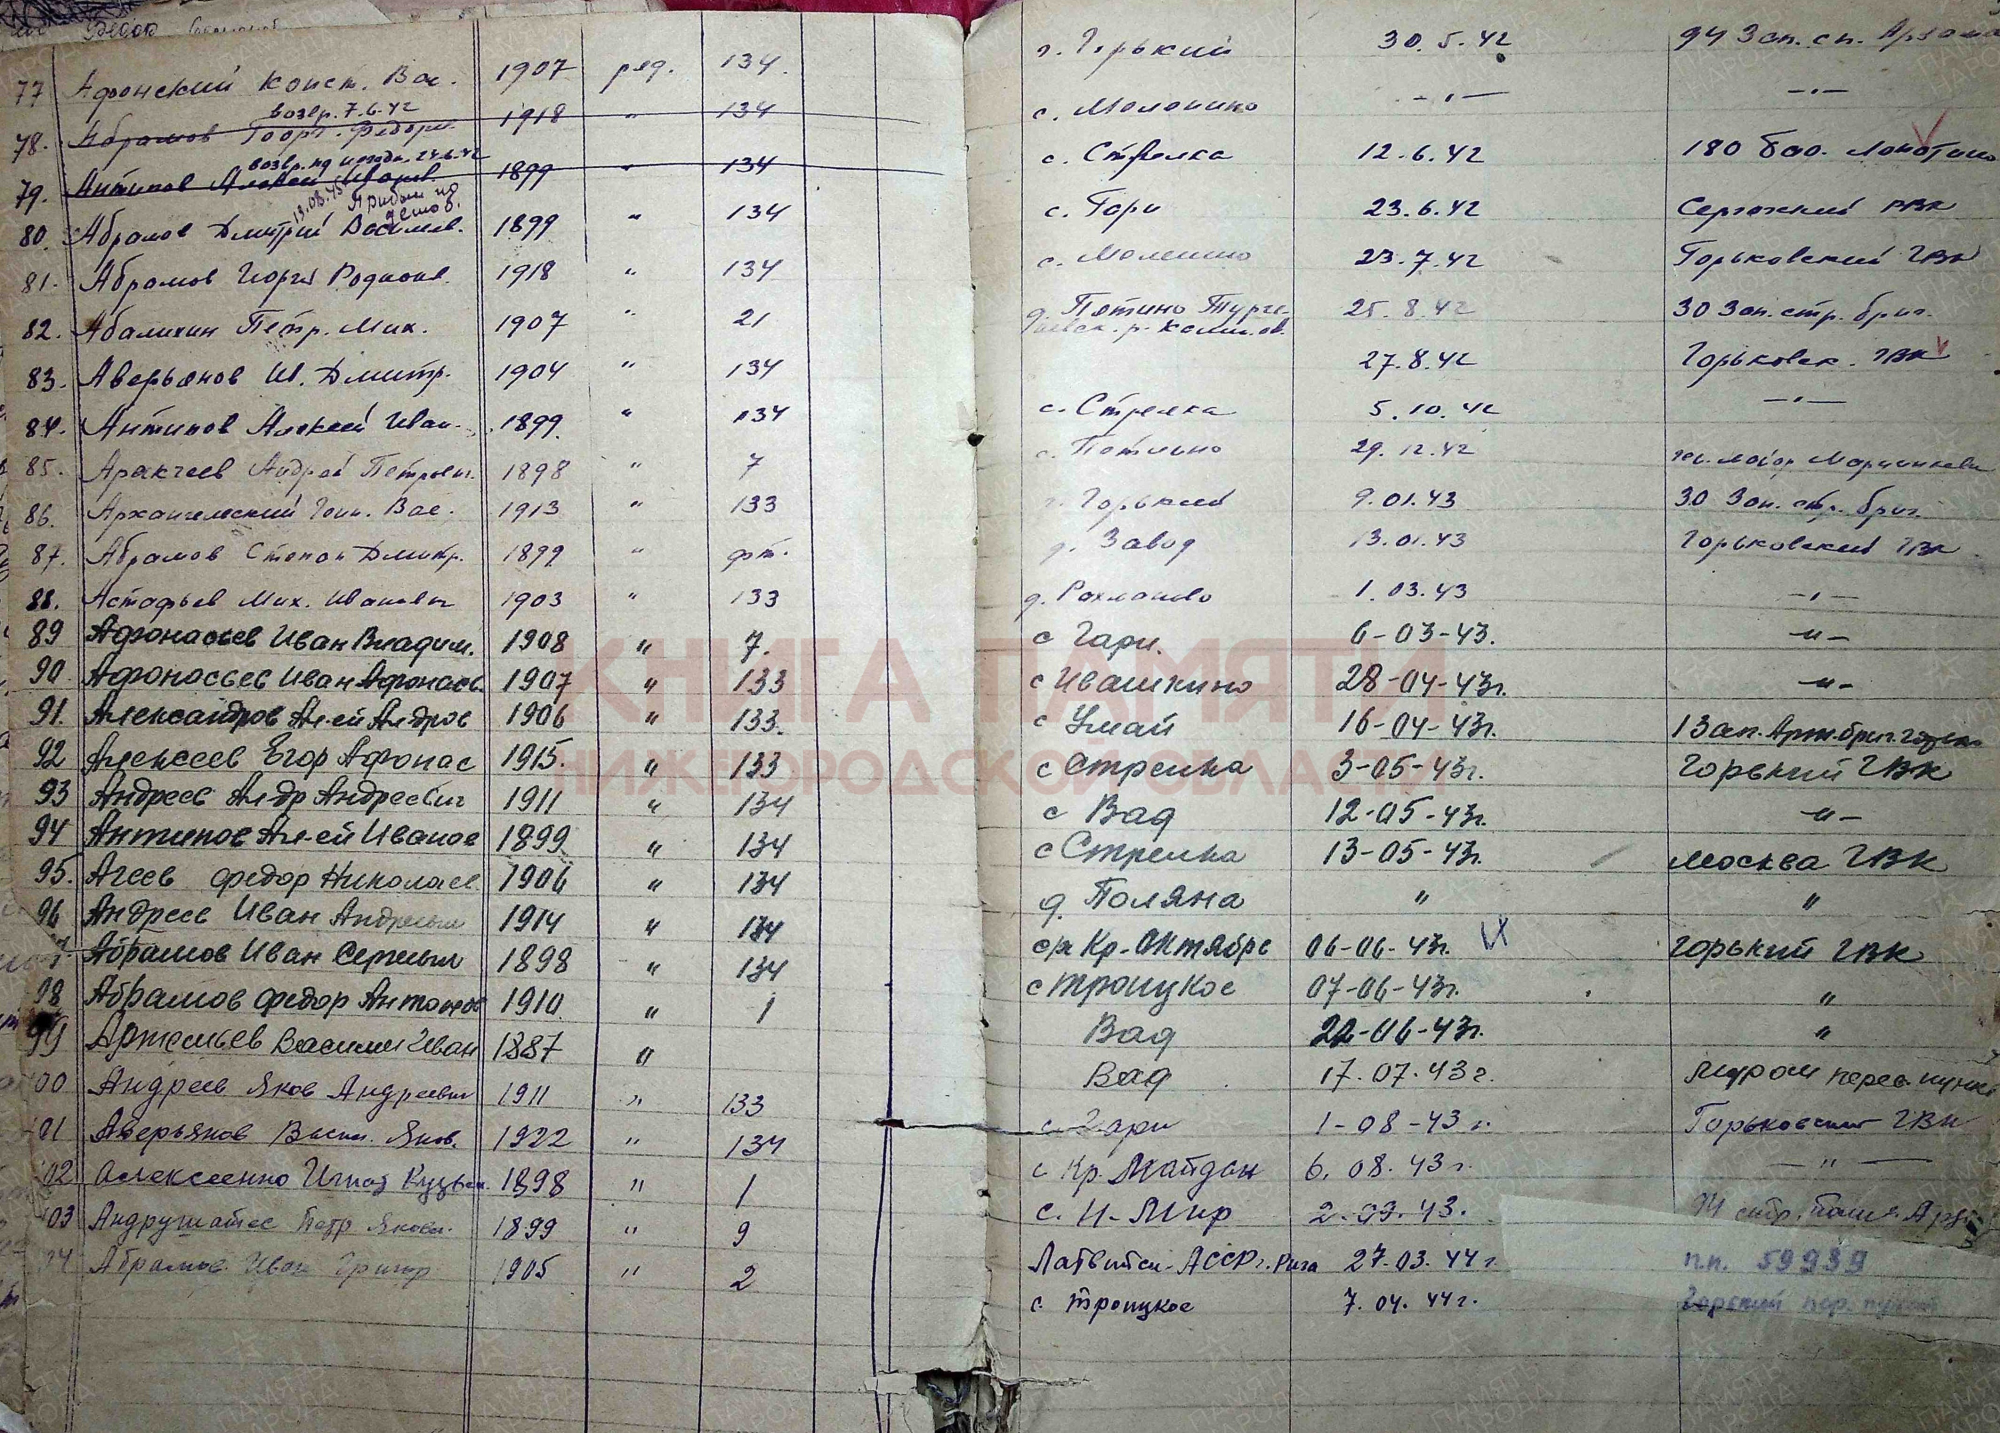 77 Афонский Конст. Вас. 1907 ряд. 134. г. Горький 30.5.42 94 Зап. сп. Арзама
возвр. 7.6.42
78. Абрамов Георг. Федор. 1918 " 134 с. -"-  -"-
79. Антипов Алексей Иванов. 1899 " 134 с. Стрелка 12.6.42 180
13.08.45 Прибыл по демоб.
80. Абрамов Дмитрий Васильев. 1899 " 134 с. Гари 23.6.42 Сергачский РВК
81. Абрамов Георгий Родионов. 1918 " 134 с. 23.7.42 Горьковский ГВК
82. Абаликин Петр. Мих. 1907 " 21 д. Пятино 25.8.42 30 Зап. стр. бриг.
83. Аверьянов И. Дмитр. 1904 " 134 27.8.42 Горьковск. ГВК
84. Антипов Алексей Иван. 1899. " 134 с. Стрелка 5.10.42 -"-
85. Аракчеев Андрей Петрович. 1898 " 7 29.12.42
86. Архангельский Вас. 1913 " 133 г. Горький 9.01.43 30 Зап. стр. бриг.
87. Абрамов Степан Дмитр. 1899 " д. Завод 13.01.43 Горьковский ГВК
88. Астафьев Мих. Иванович 1903 " 133 д. Рахманово 1.03.43 -"-
89 Афонасьев Иван Владим. 1908 " 7. с Гари. 6-03-43. -"-
90. Афонасьев Иван Афонась. 1907 " 133 с Ивашкино 28-04-43г. -"-
91. Александров Ал-ей Ал-дров 1906 " 133. с Умай 16-04-43г. 1 Зап. Арт. бриг.
92 Алексеев Егор Афонас 1915. " 133 с Стрелка 3-05-43г. Горький ГВК
93 Андреев Ал-др Андреевич 1911 " 134 с Вад 12-05-43г. -"-
94 Антипов Ал-ей Иванов 1899 " 134 с Стрелка 13-05-43г. Москва ГВК
95. Агеев Федор Николаев. 1906 " 134 д. Поляна " "
96 Андреев Иван Андреевич 1914 " 134 с/х Кр.-Октябрь 06-06-43г. Горький ГВК
Абрамов Иван Сергеевич 1898 " 134 с Троицкое 07-06-43г. "
98 Абрамов Федор Антонов 1910. " 1 Вад 22-06-43г. "
99 Артемьев Василий Иван 1887 " Вад 17.07.43г. Муром перес. пункт
00 Андреев Яков Андреевич 1911 " 133 с. Гари 1-08-43г. Горьковский ГВК
01 Аверьянов Васил. Яков. 1922 " 134 с Кр. Майдан 6.08.43г. -"-
02 Алексеенко Игнат Кузьм. 1898 " 1 с. И-Мир 2.09.43. 94
03 Петр Яковл. 1899 " 9 АССР г. Рига 27.03.44г. п.п. 59939
04 Абрамов Иван Григор 1905 " 2 с. Троицкое 7.04.44г.
КНИГА ПАМЯТИ
НИЖЕГОРОДСКОЙ ОБЛАСТИ